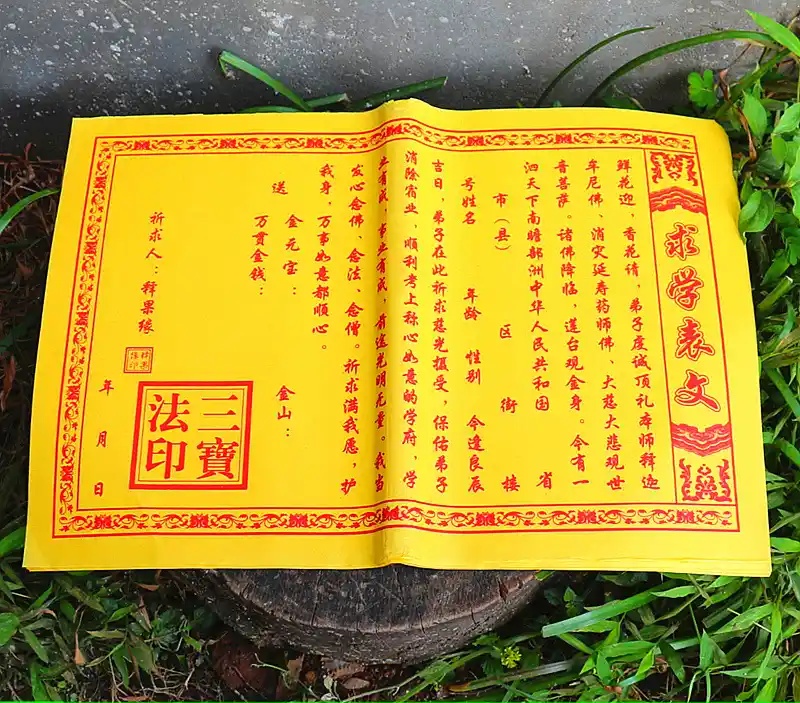 求学表文
鲜花迎，香花请，弟子虔诚顶礼本师释迦
牟尼佛、消灾延寿药师佛、大慈大悲观世
音菩萨。诸佛降临，莲台现金身。今有一
泗天下南瞻部洲中华人民共和国 省
市（县） 区 街 楼
号姓名 年龄 性别 今逢良辰
吉日，弟子在此祈求慈光摄受，保佑弟子
消除宿业，顺利考上称心如意的学府，学
业有成，事业有成，前途光明无量。我当
发心念佛、念法、念僧。祈求满我愿，护
我身，万事如意都顺心。
送 金元宝： 金山：
万贯金钱：
三寶
法印
祈求人：释果缘
年 月 日